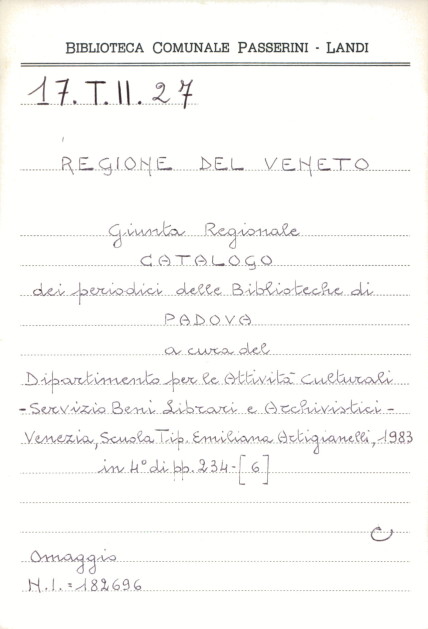 BIBLIOTECA COMUNALE PASSERINI - LANDI
17.T.II.27
REGIONE DEL VENETO
Giunta Regionale
CATALOGO
dei periodici delle Biblioteche di
PADOVA
a cura del
Dipartimento per le Attività Culturali
- Servizio Beni Librari e Archivistici -
Venezia, Scuola Tip. Emiliana Artigianelli, 1983
in 4° di pp. 234-[6]
Omaggio
N.I. = 182696